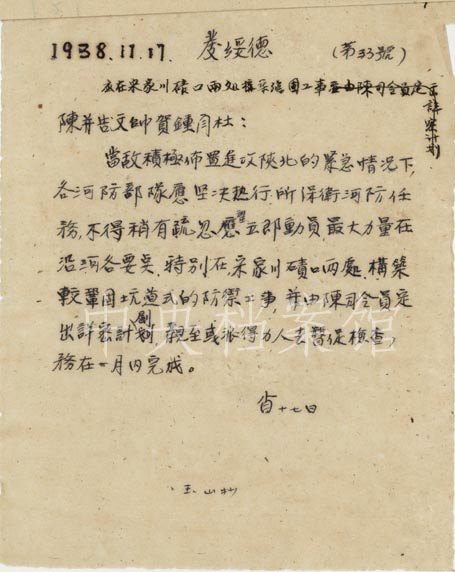 1938.11.17. 發綏德 (第33號)
应在宋家川磧口兩处構筑巩固工事並由陳司令員定
出詳密計划
陳并告文帥賀鍾閆杜：
當敌積極佈置進攻陝北的緊急情况下，
各河防部隊應坚决执行所保衛河防任
務，不得稍有疏忽，應望立即動員最大力量在
沿河各要点，特别在宋家川磧口兩处，構築
較鞏固坑道式的防禦工事，并由陳司令員定
出詳密計劃，親至或派得力人去督促檢查，
務在一月內完成。
十七日
中央档案馆